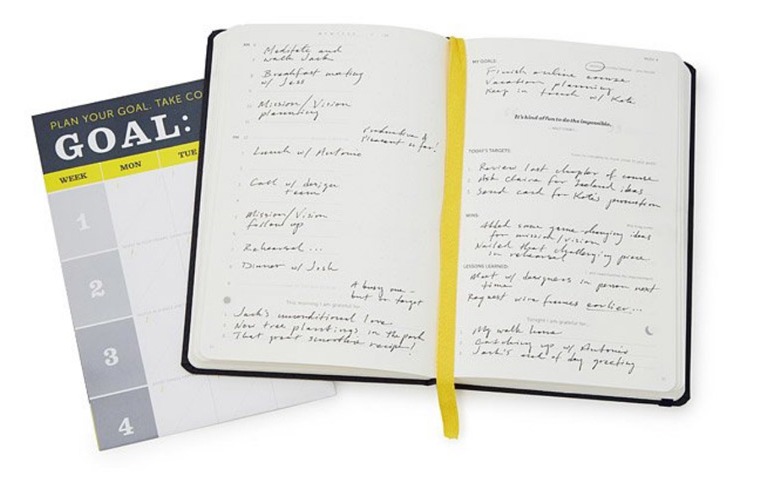 PLAN YOUR GOAL. TAKE CO
GOAL:
WEEK MON TUE
1
2
3
4
AM
Meditate and
walk Jack
Breakfast meeting
w/ Jess
Mission/Vision
planning
Productive &
pleasant so far!
Lunch w/ Antonio
Call w/ design
team
Mission/Vision
follow up
Rehearsal...
Dinner w/ Josh
A busy one-
but on target
This morning I am grateful for...
Jack's unconditional love
New tree plantings in the park
That great smoothie recipe!
MY GOALS:
Finish online course
Vacation planning
Keep in touch w/ Kate
It's kind of fun to do the impossible.
TODAY'S TARGETS:
Review last chapter of course
Ask Claire for Iceland ideas
Send card for Kate's promotion
WINS:
Added some game-changing ideas
for mission/vision
Nailed that challenging piece
in rehearsal
LESSONS LEARNED:
Meet w/ designers in person next
time
Request wire frames earlier...
Tonight I am grateful for...
My walk home
Catching up w/ Antonio
Jack's end of day greeting